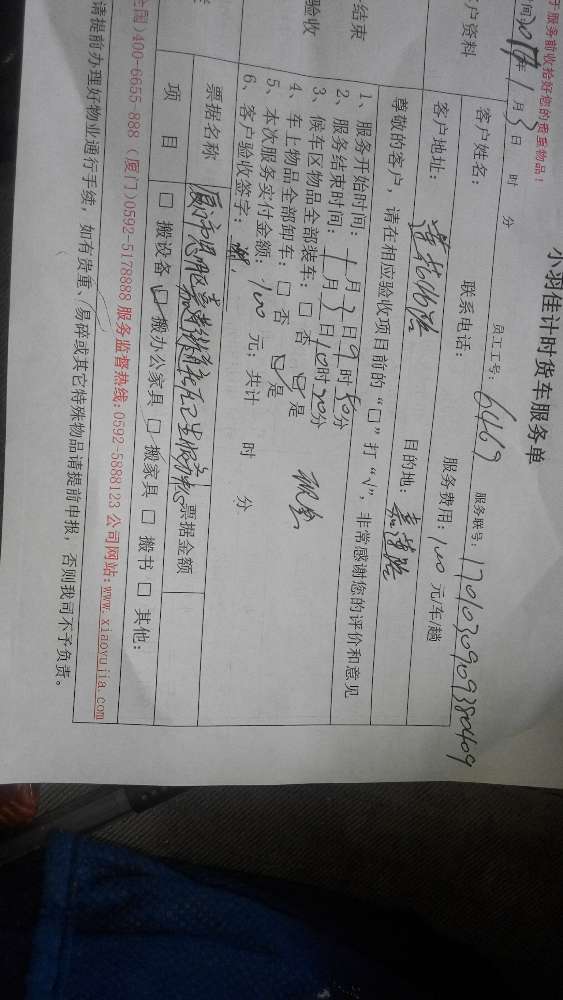 小羽佳计时货车服务单
于服务前收拾好您的贵重物品！
时间2017年1月3日 时 分 员工工号：6469 服务联号：1701030909380409
户资料 客户姓名： 联系电话： 服务费用：100元/车/趟
客户地址： 目的地：
尊敬的客户，请在相应验收项目前的“□”打“√”，非常感谢您的评价和意见
结束
验收
1、服务开始时间：1月3日9时50分
2、服务结束时间：1月3日10时20分
3、候车区物品全部装车：□ 否 ☑ 是
4、车上物品全部卸车：□ 否 ☑ 是 现金
5、本次服务实付金额：100 元；共计 时 分
6、客户验收签字：
票据名称 票据金额
项 目 □ 搬设备 ☑ 搬办公家具 □ 搬家具 □ 搬书 □ 其他：
全国)400-6655-888 (厦门)0592-5178888 服务监督热线:0592-5888123 公司网站:www.xiaoyujia.com
请提前办理好物业通行手续，如有贵重、易碎或其它特殊物品请提前申报，否则我司不予负责。